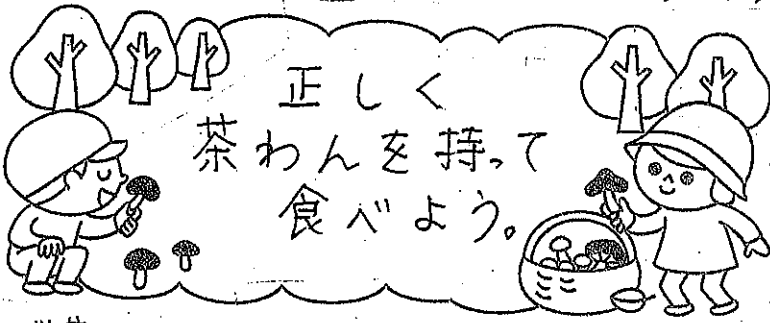 正しく
茶わんを持って
食べよう。